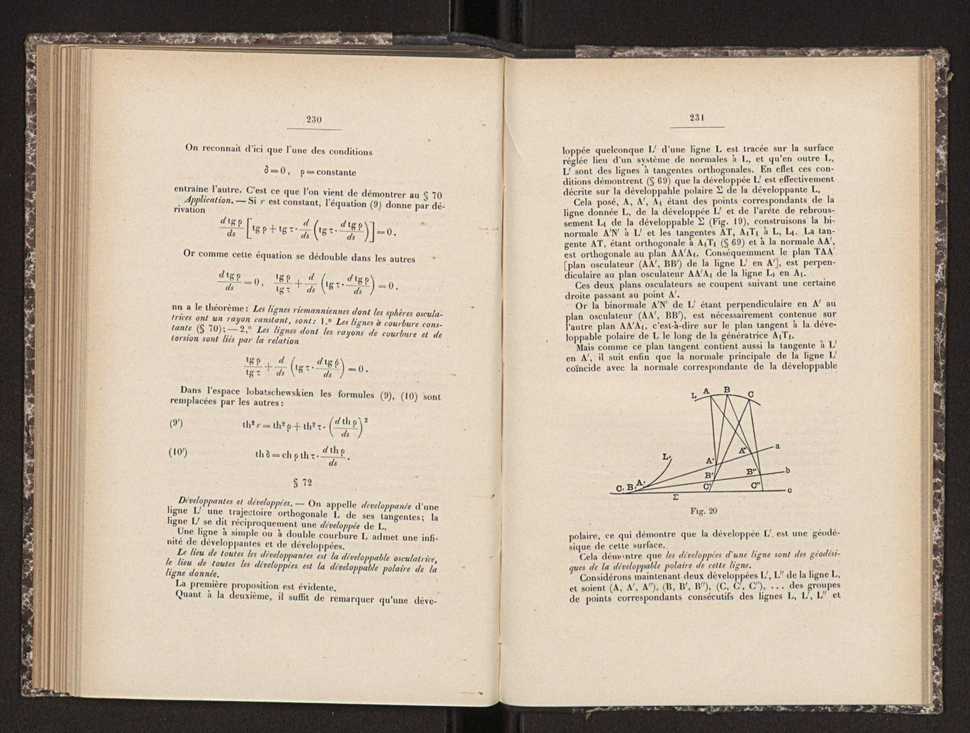 230
On reconnait d'ici que l'une des conditions
δ = 0 , ρ = constante
entraîne l'autre. C'est ce que l'on vient de démontrer au § 70
Application. — Si r est constant, l'équation (9) donne par dé-
rivation
d tg ρ / ds [ tg ρ + tg τ · d / ds ( tg τ · d tg ρ / ds ) ] = 0 .
Or comme cette équation se dédouble dans les autres
d tg ρ / ds = 0 , tg ρ / tg τ + d / ds ( tg τ · d tg ρ / ds ) = 0 .
nn a le théorème: Les lignes riemanniennes dont les sphères oscula-
trices ont un rayon constant, sont: 1.º Les lignes à courbure cons-
tante (§ 70); — 2.º Les lignes dont les rayons de courbure et de
torsion sont liés par la relation
tg ρ / tg τ + d / ds ( tg τ · d tg ρ / ds ) = 0 .
Dans l'espace lobatschewskien les formules (9), (10) sont
remplacées par les autres:
(9') th² r = th² ρ + th² τ · ( d th ρ / ds )²
(10') th δ = ch ρ th τ · d th ρ / ds .
§ 72
Développantes et développées. — On appelle développante d'une
ligne L' une trajectoire orthogonale L de ses tangentes; la
ligne L' se dit réciproquement une développée de L.
Une ligne à simple ou à double courbure L admet une infi-
nité de développantes et de développées.
Le lieu de toutes les développantes est la développable osculatrice,
le lieu de toutes les développées est la développable polaire de la
ligne donnée.
La première proposition est évidente.
Quant à la deuxième, il suffit de remarquer qu'une déve-
231
loppée quelconque L' d'une ligne L est tracée sur la surface
réglée lieu d'un système de normales à L, et qu'en outre L,
L' sont des lignes à tangentes orthogonales. En effet ces con-
ditions démontrent (§ 69) que la développée L' est effectivement
décrite sur la développable polaire Σ de la développante L.
Cela posé, A, A', A₁ étant des points correspondants de la
ligne donnée L, de la développée L' et de l'arête de rebrous-
sement L₁ de la développable Σ (Fig. 19), construisons la bi-
normale A'N' à L' et les tangentes AT, A₁T₁ à L, L₁. La tan-
gente AT, étant orthogonale à A₁T₁ (§ 69) et à la normale AA',
est orthogonale au plan AA'A₁. Conséquemment le plan TAA'
[plan osculateur (AA', BB') de la ligne L' en A'], est perpen-
diculaire au plan osculateur AA'A₁ de la ligne L₁ en A₁.
Ces deux plans osculateurs se coupent suivant une certaine
droite passant au point A'.
Or la binormale A'N' de L' étant perpendiculaire en A' au
plan osculateur (AA', BB'), est nécessairement contenue sur
l'autre plan AA'A₁, c'est-à-dire sur le plan tangent à la déve-
loppable polaire de L le long de la génératrice A₁T₁.
Mais comme ce plan tangent contient aussi la tangente à L'
en A', il suit enfin que la normale principale de la ligne L'
coïncide avec la normale correspondante de la développable
L A B C
A'' a
L₁ A' B'' b
C₁ B₁ A₁ B' C' C'' c
Σ
Fig. 20
polaire, ce qui démontre que la développée L' est une géodé-
sique de cette surface.
Cela démontre que les développées d'une ligne sont des géodési-
ques de la développable polaire de cette ligne.
Considérons maintenant deux développées L', L'' de la ligne L,
et soient (A, A', A''), (B, B', B''), (C, C', C''), . . . des groupes
de points correspondants consécutifs des lignes L, L', L'' et